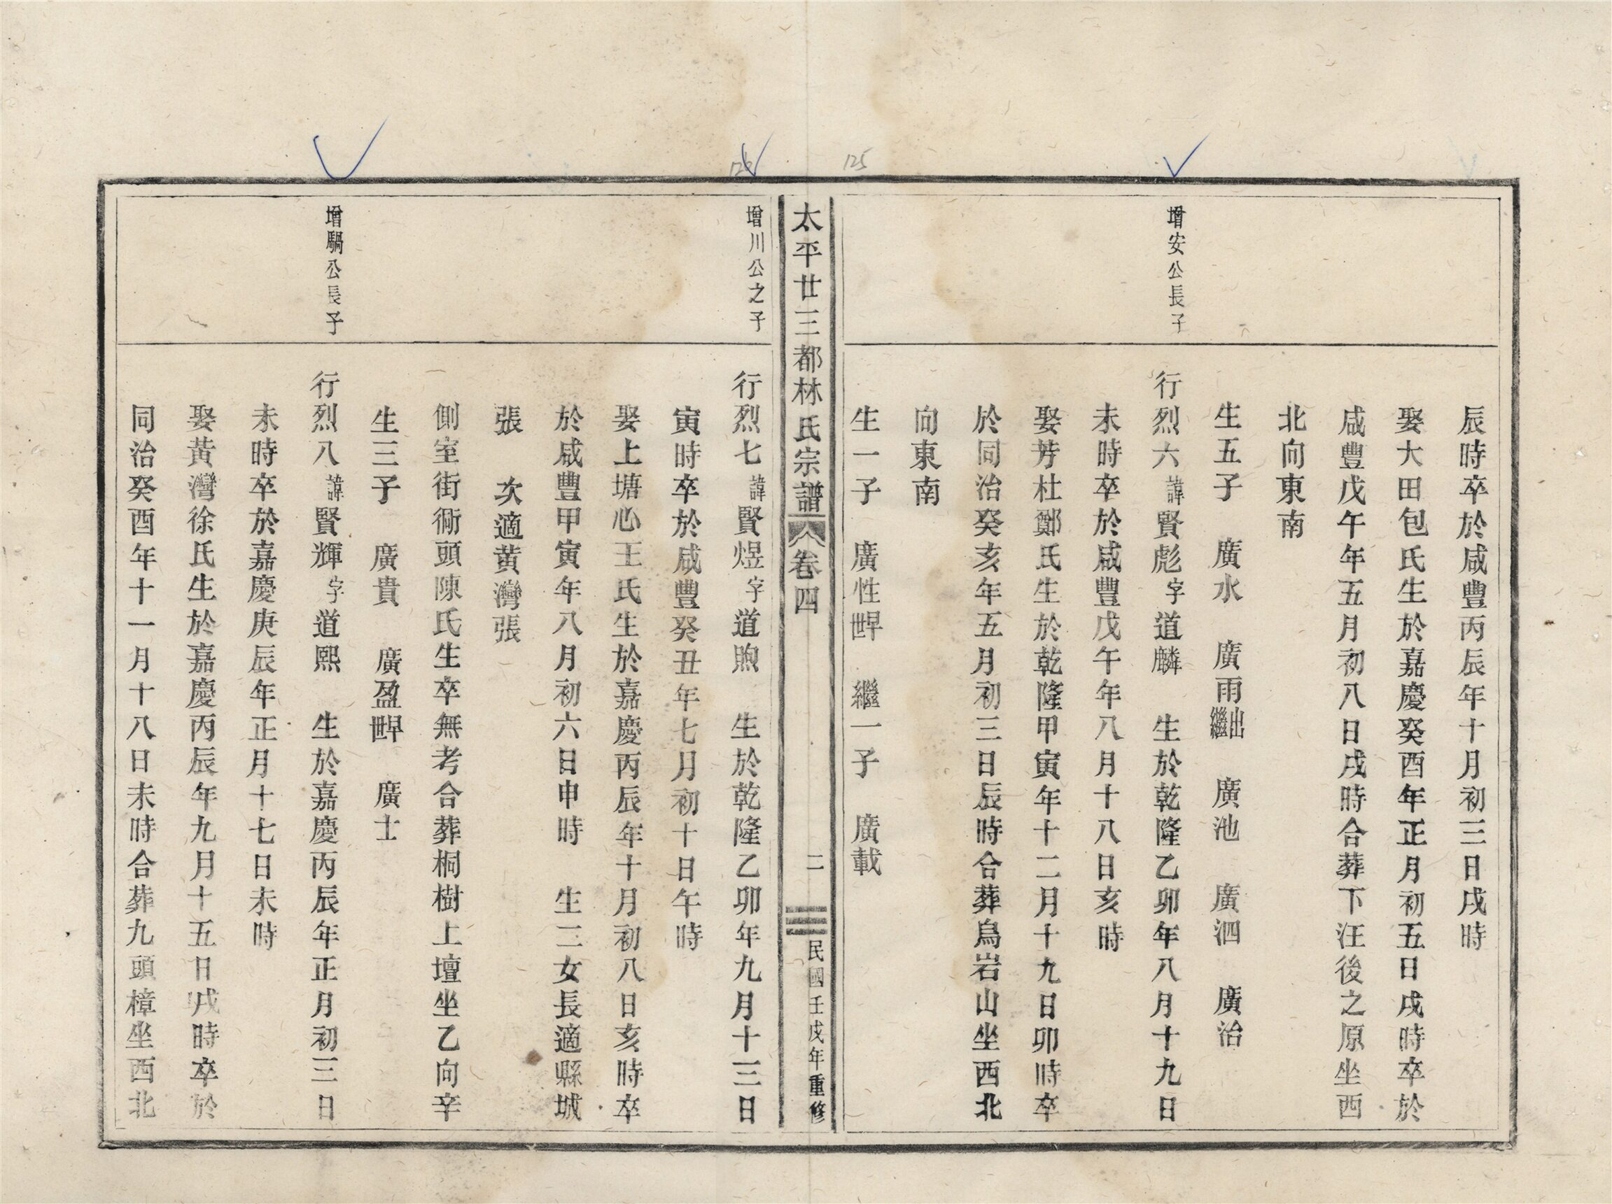 125
辰時卒於咸豐丙辰年十月初三日戌時
娶大田包氏生於嘉慶癸酉年正月初五日戌時卒於
咸豐戊午年五月初八日戌時合葬下汪後之原坐西
北向東南
生五子　廣水　廣雨出繼　廣池　廣泗　廣治
增安公長子
行烈六諱賢彪字道麟　生於乾隆乙卯年八月十九日
未時卒於咸豐戊午年八月十八日亥時
娶芳杜鄭氏生於乾隆甲寅年十二月十九日卯時卒
於同治癸亥年五月初三日辰時合葬鳥岩山坐西北
向東南
生一子　廣性早世　繼一子　廣載
太平廿三都林氏宗譜　卷四　二　民國壬戌年重修
增川公之子
行烈七諱賢煜字道煦　生於乾隆乙卯年九月十三日
寅時卒於咸豐癸丑年七月初十日午時
娶上塘心王氏生於嘉慶丙辰年十月初八日亥時卒
於咸豐甲寅年八月初六日申時　生二女長適縣城
張　次適黃灣張
側室街衕頭陳氏生卒無考合葬桐樹上壇坐乙向辛
生三子　廣貴　廣盈早世　廣士
增騆公長子
行烈八諱賢輝字道熙　生於嘉慶丙辰年正月初三日
未時卒於嘉慶庚辰年正月十七日未時
娶黃灣徐氏生於嘉慶丙辰年九月十五日戌時卒於
同治癸酉年十一月十八日未時合葬九頭樟坐西北